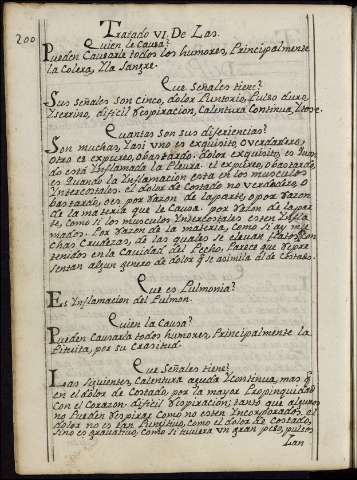 200
Tratado VI. De Las.
Quien le Causa?
Pueden Causarle todos los humores, Principalmente
la Colera, Yla Sangre.
Que Señales tiene?
Sus Señales son Cinco, dolor Puntorio, Pulso duro,
Yserrino, dificil Respiracion, Calentura Continua, Ytose.
Quantas son sus diferiencias?
Son muchas, Yasi uno es exquisito, overdadero,
otro es expureo, obastardo. dolor exquisito, es Quan-
do está Ynflamada la Pleura. el expureo, obastardo,
es Quando la Ynflamacion esta en los musculos
Yntercostales. el dolor de Costado no verdadero, o
bastardo, o es por razon de laparte, o por razon
de la materia que le Causa. por razon de la par-
te, Como si los musculos Yntercostales esten Ynfla-
mados. Por razon de la materia, Como si ay mu-
chas Crudezas, de las quales se elevan flatos Con
tenidos en la Cavidad del Pecho, Parece que repre
sentan algun genero de dolor q̃ se asimila al de Costado.
Que es Pulmonia?
Es Ynflamacion del Pulmon.
Quien la Causa?
Pueden Causarla todos humores, Principalmente la
Pituita, por su Crasitud.
Que Señales tiene?
Las siguientes, Calentura aguda YContinua, mas q̃
en el dolor de Costado, por la mayor Propinquidad
Con el Corazon. dificil Respiracion, tanto que algunos
no Pueden Respirar Como no esten Yncorporados. el
dolor no es tan Punjitivo, Como el dolor de Costado,
Sino es gravativo, Como si tuviera un gran peso,
Lan